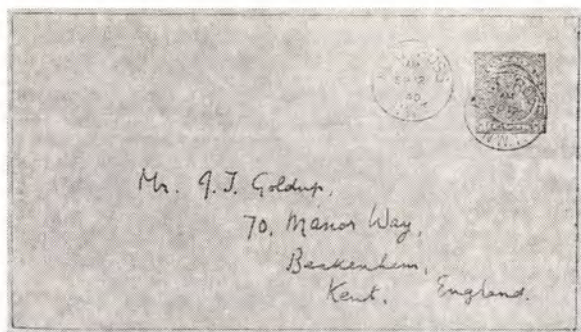 SP 12
40
Mr. J. T. Goldup,
70, Manor Way,
Beckenham,
Kent. England.